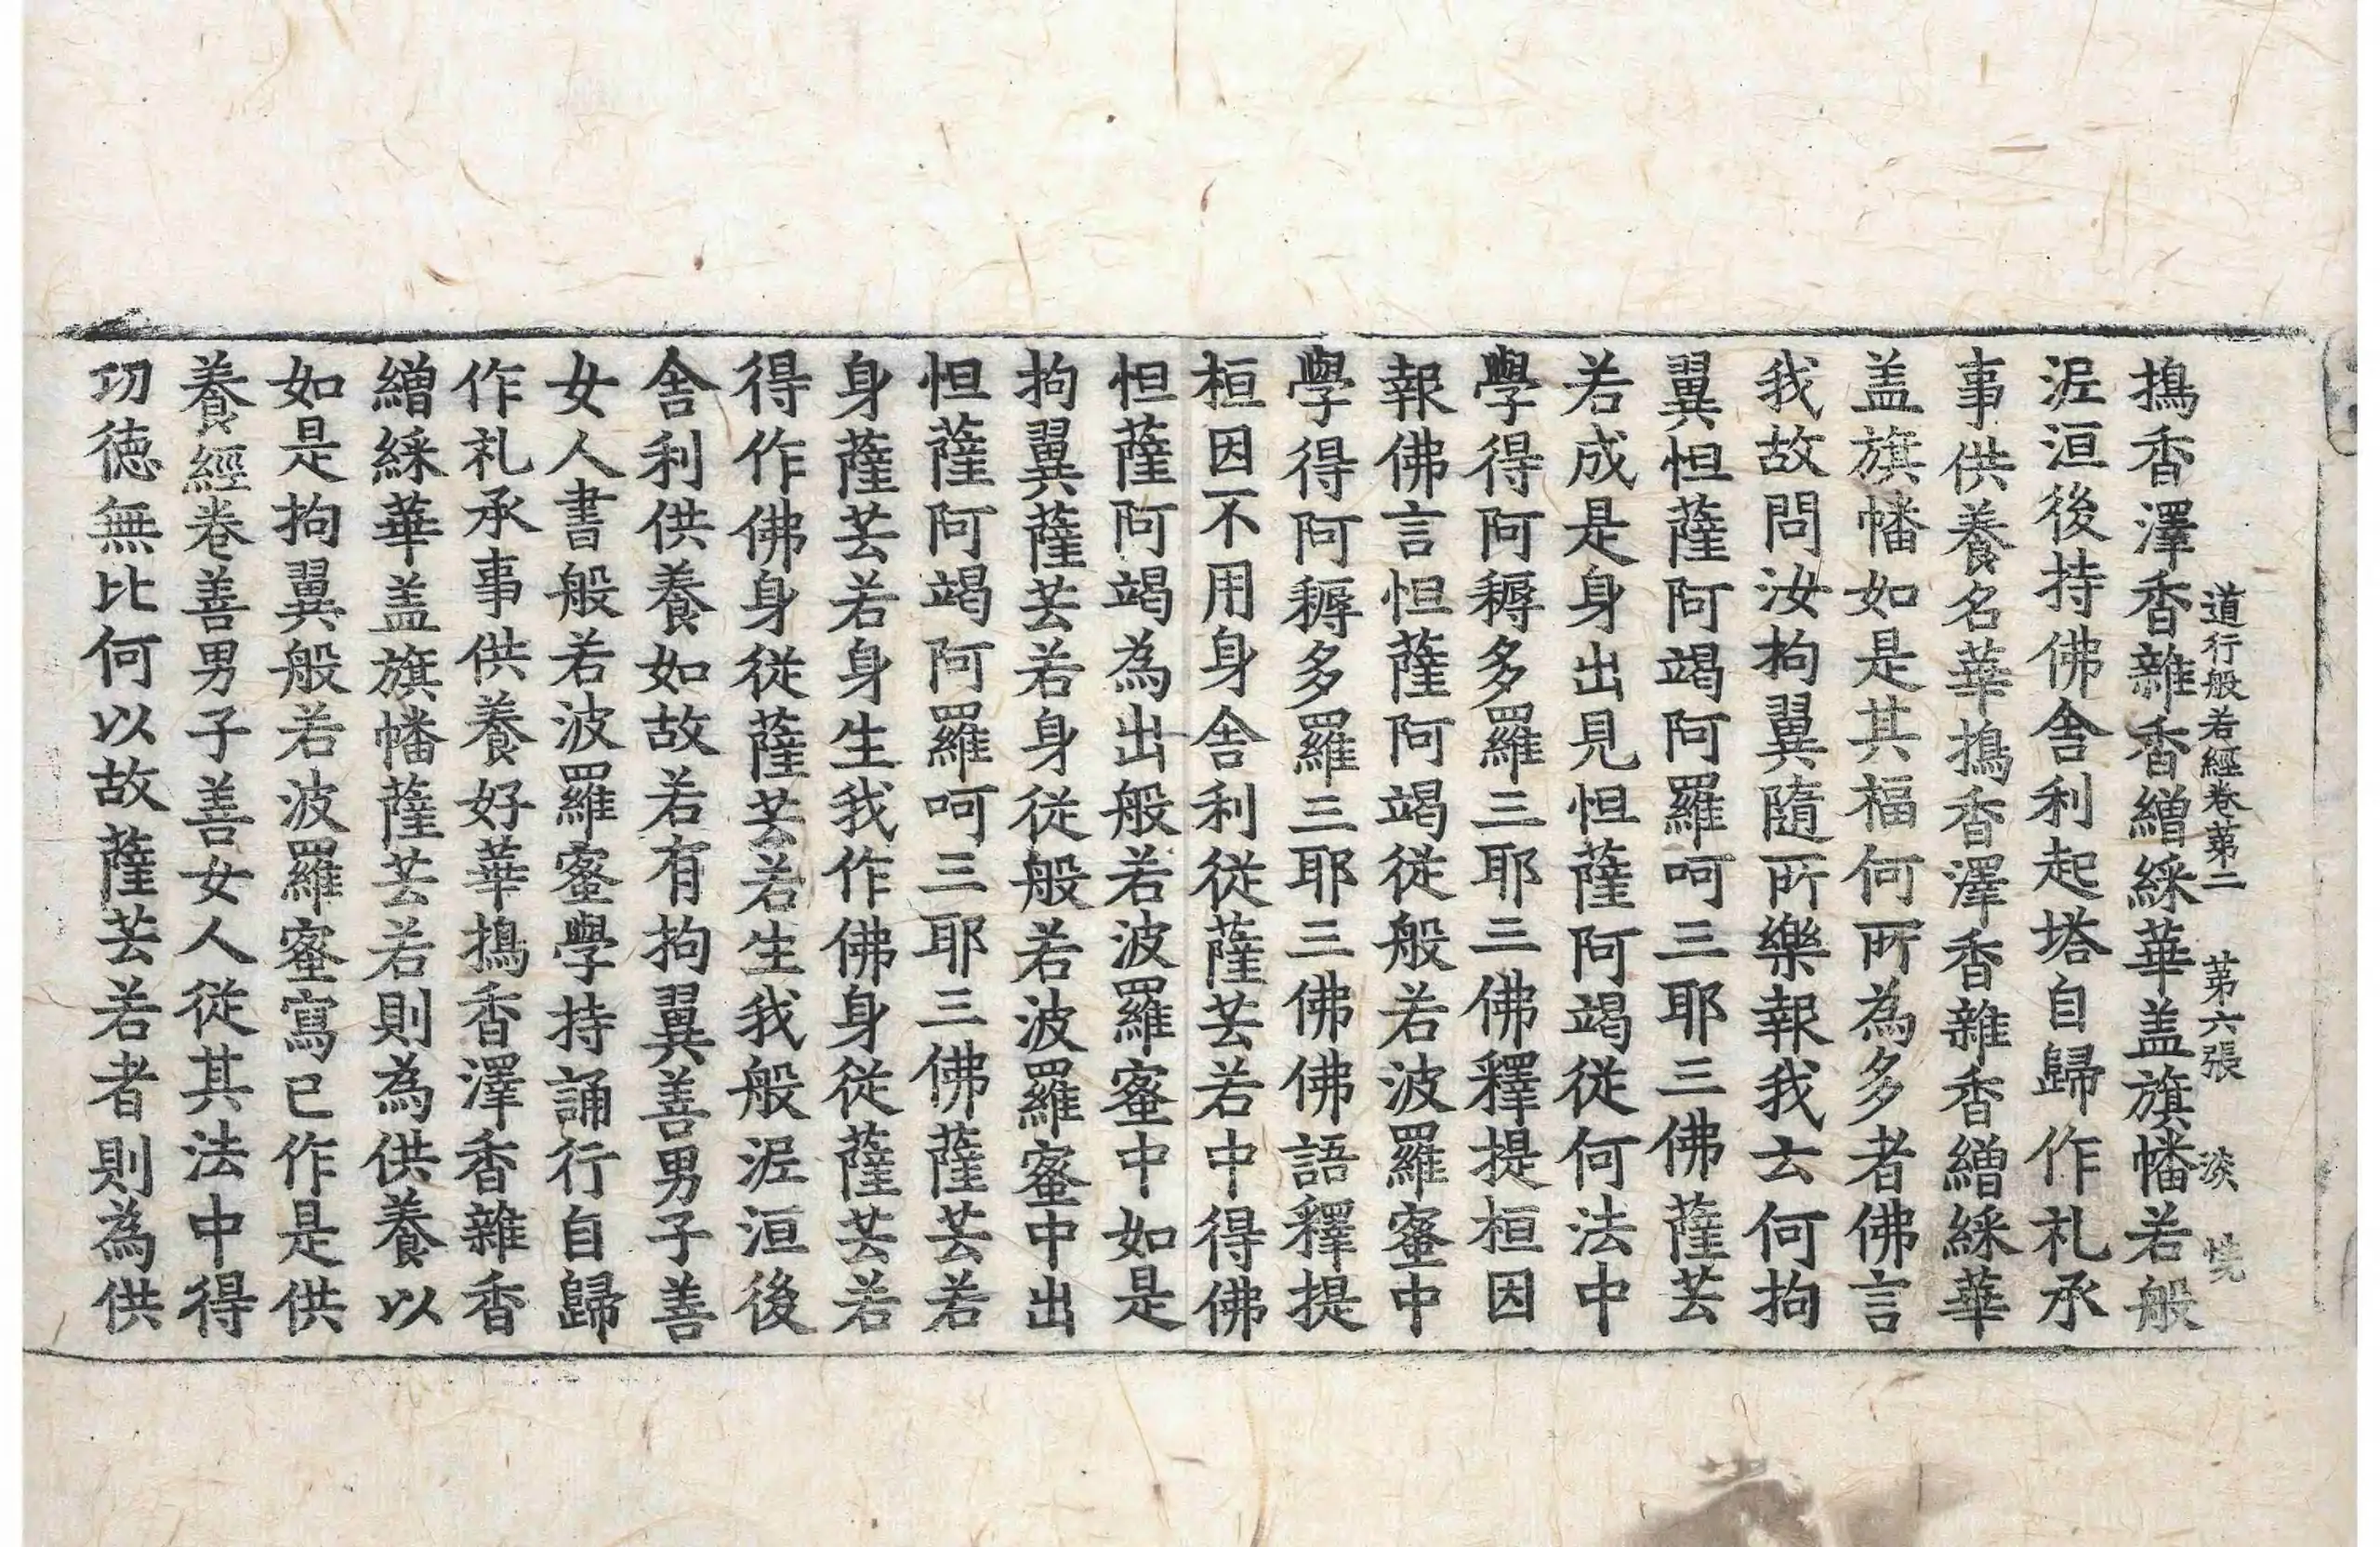 道行般若經卷苐二 苐六張 淡
搗香澤香雜香繒綵華盖旗幡若般
泥洹後持佛舍利起塔自歸作礼承
事供養名華搗香澤香雜香繒綵華
盖旗幡如是其福何所為多者佛言
我故問汝拘翼隨所樂報我云何拘
翼怛薩阿竭阿羅呵三耶三佛薩芸
若成是身出見怛薩阿竭從何法中
學得阿耨多羅三耶三佛釋提桓因
報佛言怛薩阿竭從般若波羅蜜中
學得阿耨多羅三耶三佛佛語釋提
桓因不用身舍利從薩芸若中得佛
怛薩阿竭為出般若波羅蜜中如是
拘翼薩芸若身從般若波羅蜜中出
怛薩阿竭阿羅呵三耶三佛薩芸若
身薩芸若身生我作佛身從薩芸若
得作佛身從薩芸若生我般泥洹後
舍利供養如故若有拘翼善男子善
女人書般若波羅蜜學持誦行自歸
作礼承事供養好華搗香澤香雜香
繒綵華盖旗幡薩芸若則為供養以
如是拘翼般若波羅蜜寫已作是供
養經卷善男子善女人從其法中得
功德無比何以故薩芸若者則為供